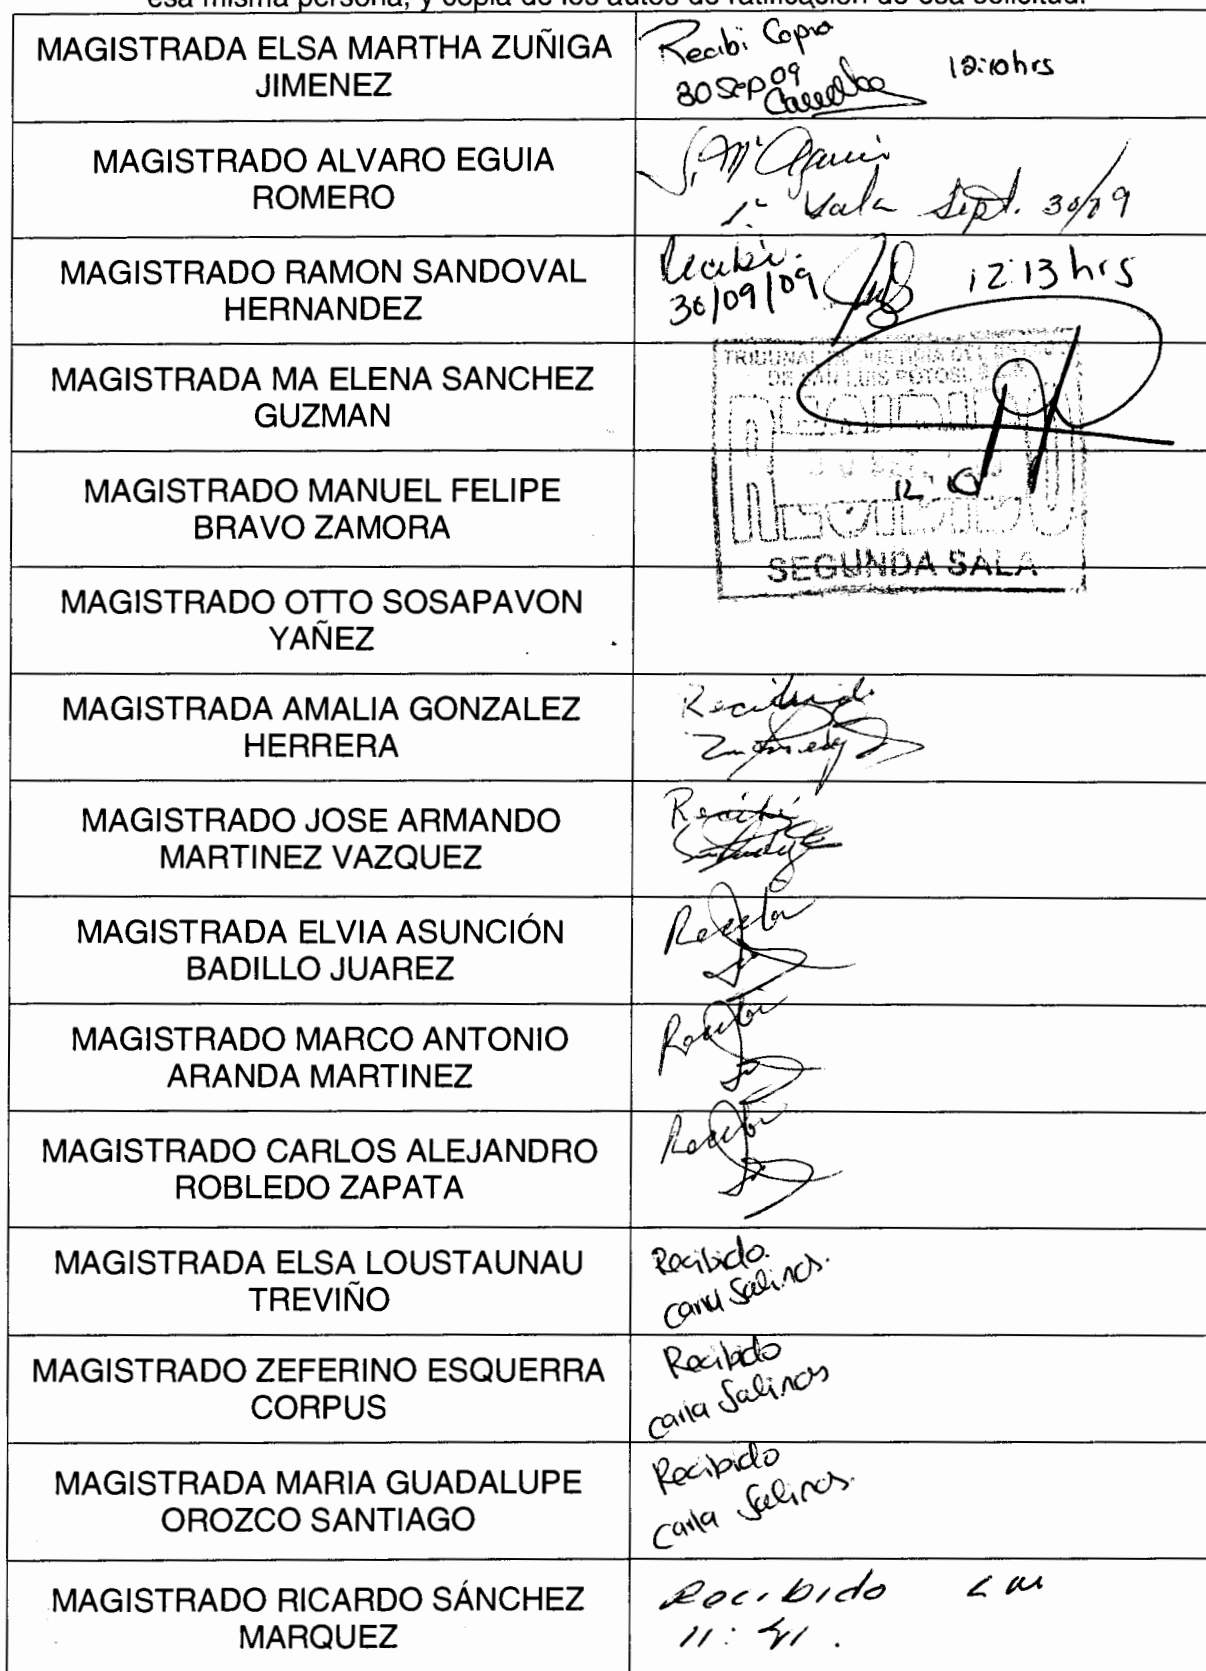 esa misma persona, y copia de los autos de ratificación de esa solicitud.
MAGISTRADA ELSA MARTHA ZUÑIGA
JIMENEZ
Recibi Copia
30 Sep 09
12:10hrs
MAGISTRADO ALVARO EGUIA
ROMERO
1ª Sala Sept. 30/09
MAGISTRADO RAMON SANDOVAL
HERNANDEZ
Recibí.
30/09/09
12:13 hrs
MAGISTRADA MA ELENA SANCHEZ
GUZMAN
TRIBUNAL DE JUSTICIA DEL
DE SAN LUIS POTOSI
RECIBIDO
MAGISTRADO MANUEL FELIPE
BRAVO ZAMORA
SEGUNDA SALA
MAGISTRADO OTTO SOSAPAVON
YAÑEZ
MAGISTRADA AMALIA GONZALEZ
HERRERA
MAGISTRADO JOSE ARMANDO
MARTINEZ VAZQUEZ
Recibí
MAGISTRADA ELVIA ASUNCIÓN
BADILLO JUAREZ
Recibí
MAGISTRADO MARCO ANTONIO
ARANDA MARTINEZ
Recibí
MAGISTRADO CARLOS ALEJANDRO
ROBLEDO ZAPATA
Recibí
MAGISTRADA ELSA LOUSTAUNAU
TREVIÑO
Recibido.
Carla Salinas.
MAGISTRADO ZEFERINO ESQUERRA
CORPUS
Recibido
Carla Salinas
MAGISTRADA MARIA GUADALUPE
OROZCO SANTIAGO
Recibido
Carla Salinas.
MAGISTRADO RICARDO SÁNCHEZ
MARQUEZ
Recibido
11:41.